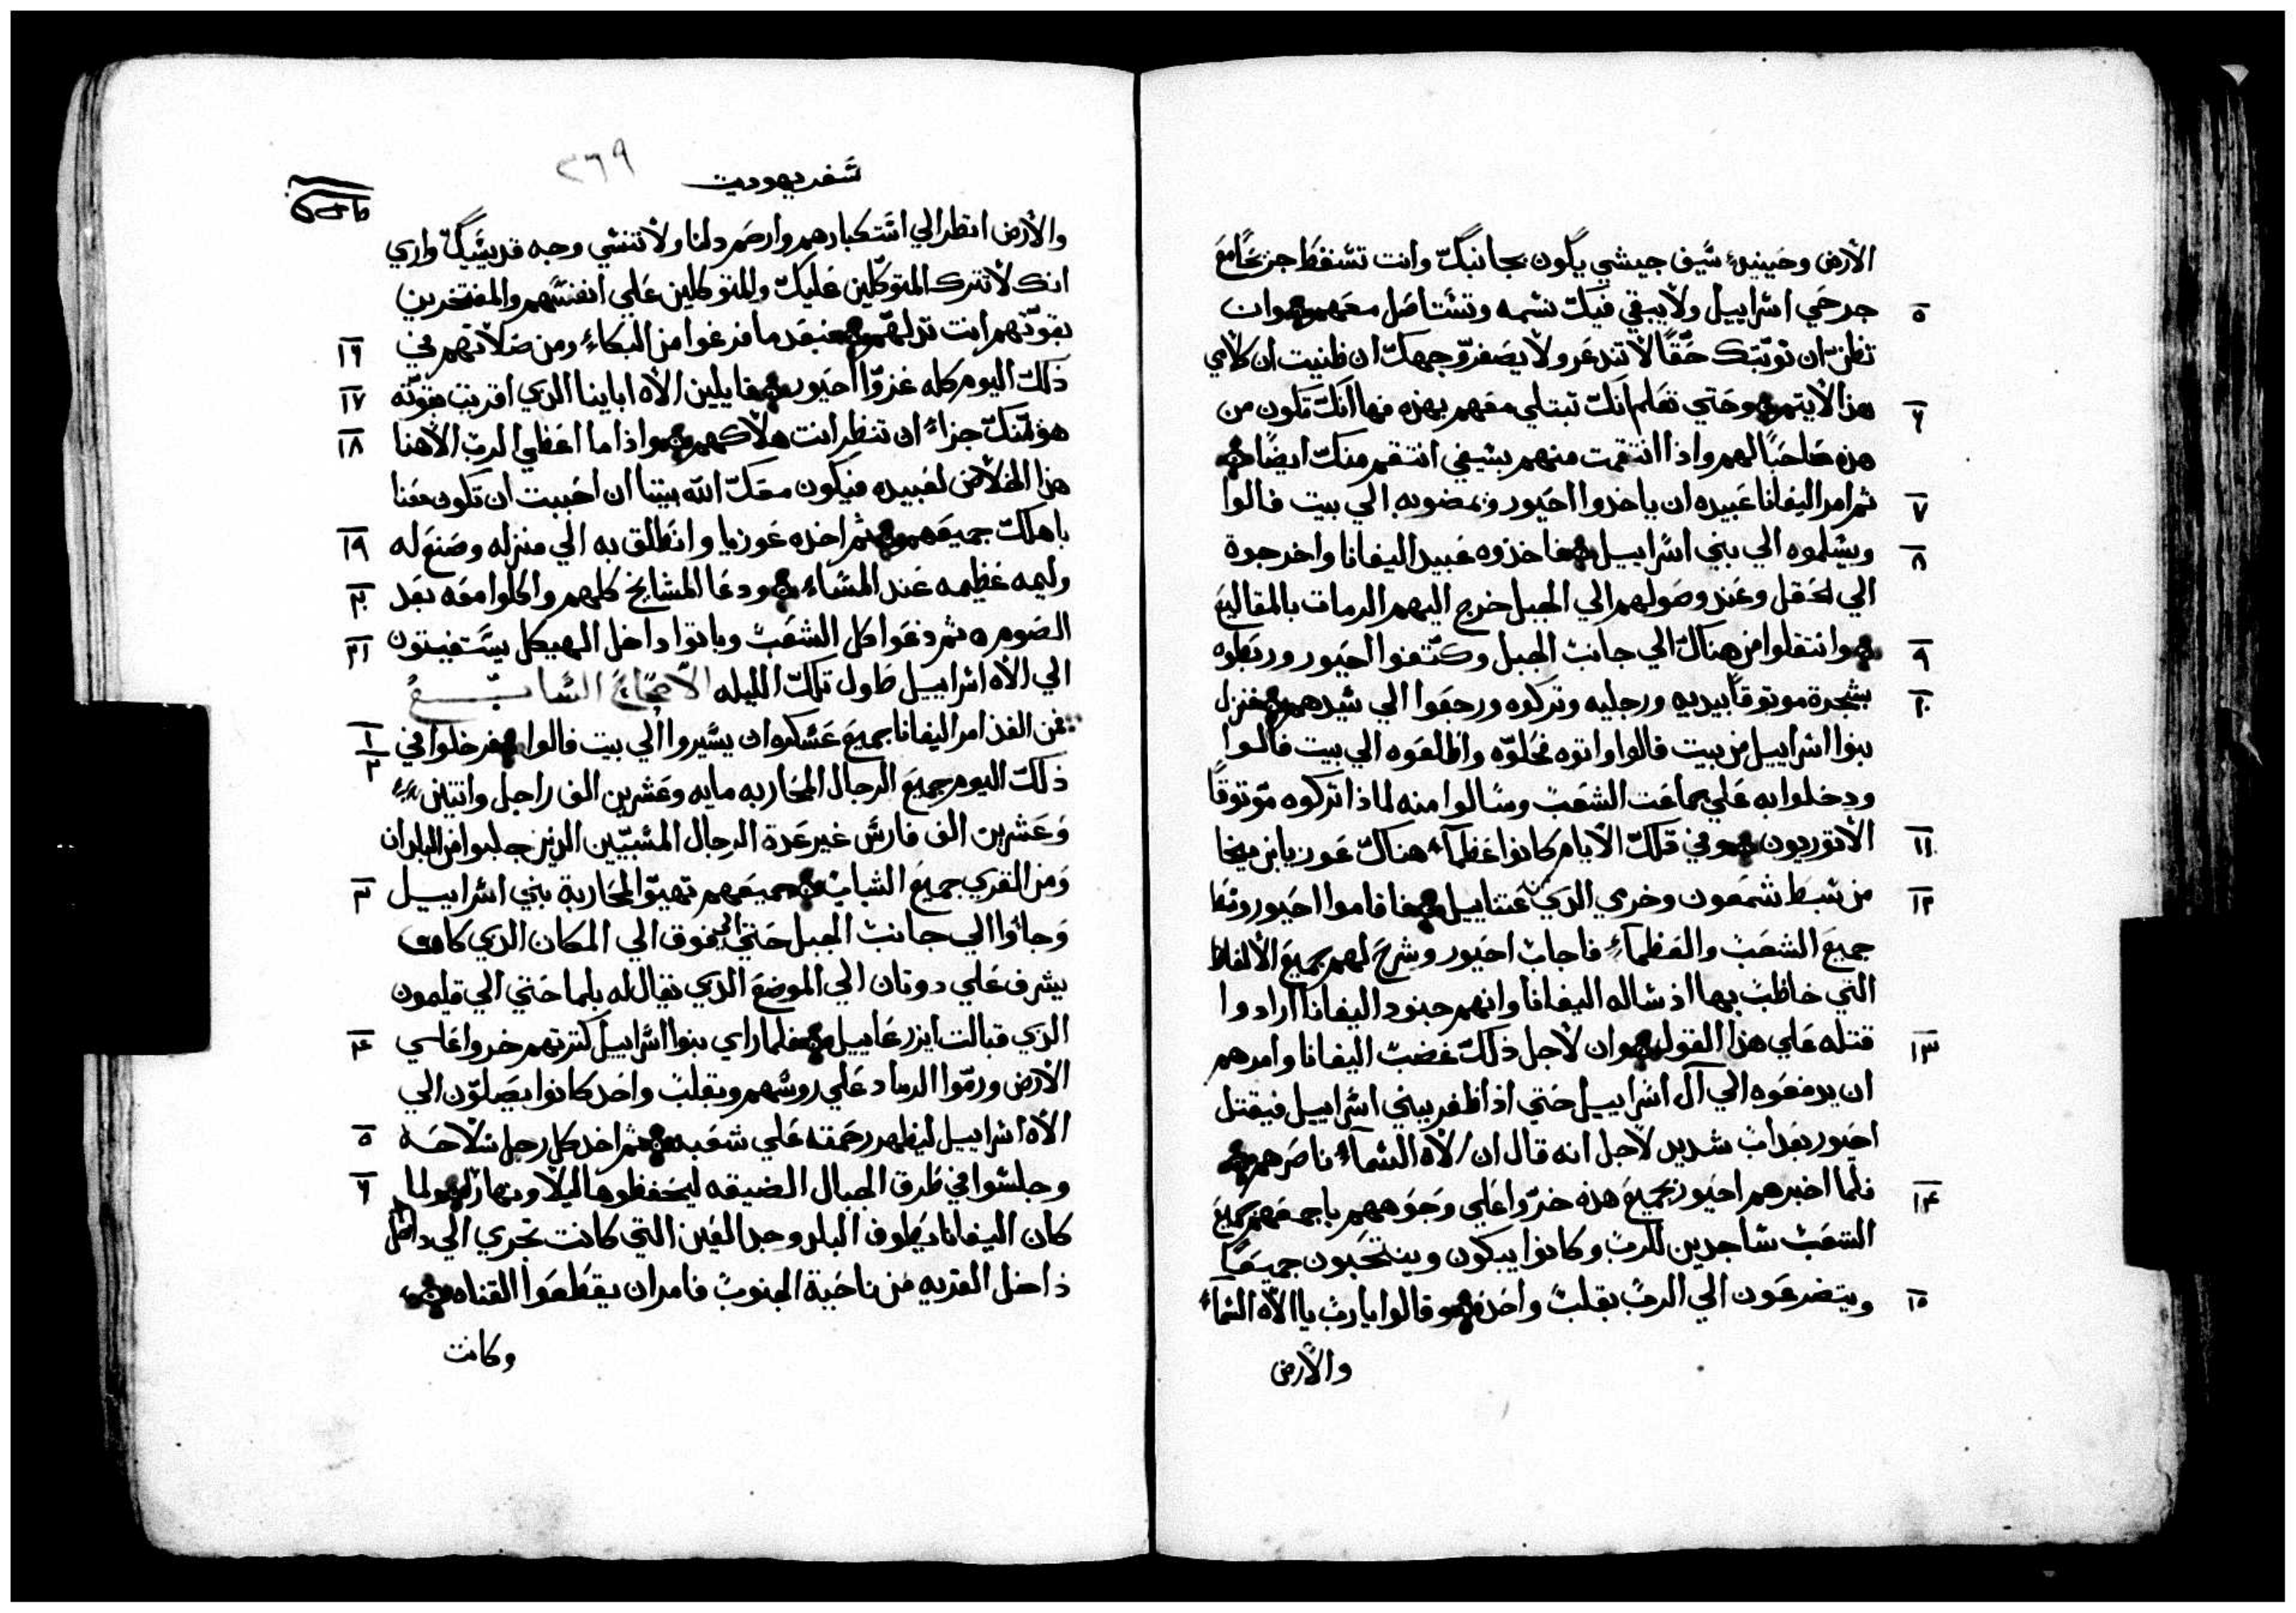 الأرض وحينيدٍ سَيف جيشي يكون بجانبكّ وانت تسْقط جزعًا مع
٥ جرحَي اسْراييل ولا يبقي فيكّ نسْمه وتسْتاصَل معَهم وان
تظنّ ان نوبّتك حَقًا لا تندعَر ولا يصَفرّ وجهكّ ان ظنيت ان كلامي
٦ هذا لا يتم وحَتي تعَلم انكّ تبتلي معَهم بهذه فها انكّ تكون من
هذه صَاحَبًا لهم واذا انتقمت منهم بسَيفي انتقم منكّ ايضًا
٧ ثم امر اليفانا عَبيده ان ياخدوا احَيور ويمضوبه الي بيت فالوا
٨ ويسَلموه الي بني اسْراييل فاخذوه عَبيد اليفانا واخرجوة
الي الحَقل وعَند وصَولهم الي الجبل خرج اليهم الرمات بالمقاليع
٩ وانتقلوا من هناكّ الي جانبْ الجبل وكتّفوا احَيور وربَطوه
١٠ بشجرة موتوقًا بيديه ورجليه وتركوه ورجعَوا الي سَيدهم فنزل
بنوا اسْراييل من بيت فالوا واتوه فحَلوّه واطلعَوه الي بيت فالوا
ودخلوا به عَلي جماعَت الشعَبْ وسَالوا منه لماذا تركوه موّتوقًا
١١ الأتوريون وفي تلكّ الأيام كانوا عَظماَء هناكّ عَوزيا بن ميخا
١٢ من سْبط شمعَون وخرمي الذي عَتناييل فاقاموا احَيور وسْط
جميعَ الشعَبْ والعَظماَءِ فاجابْ احَيور وشرحَ لهم بجميعَ الألفاظ
التي خاطَبْ بها اذ سْاله اليفانا وانهم جنود اليفانا ارادوا
١٣ قتله عَلي هذا القول وان لأجل ذلكّ غضبْ اليفانا وامرهم
ان يدفعَوه الي آل اسْراييل حَتي اذا ظفر ببني اسْراييل فيقتل
احَيور بعَدابْ شديد لأجل انه قال ان الآه السْماَءِ ناصَرهم
١٤ فلما اخبرهم احَيور بجميعَ هذه خرّوا عَلي وَجوَههم باجمعَهم جميعَ
الشعَبْ سْاجدين للربْ وكانوا يبكون وينتحَبون جميعَاً
١٥ ويتضرعَون الي الربْ بقلبْ واحَد وقالوا ياربْ يا الآه السْماءِ
والأرض
سَفر يهوديت
٢٦٩
والأرض انظر الي اسْتكبارهم وارحَم دلنا ولا تنسْي وجه قديسَيكّ واري
انك لا تترك المتوكّلين عَليكّ وللمتوكلين عَلي انفسْهم والمفتخرين
١٦ بقوّتهم انت تدلهّم فبعَد ما فرغوا من البكاءِ ومن صَلاتهم في
١٧ ذلكّ اليوم كله عَزوّا احَيور قايلين الآه اباينا الذي اقريت بقوّته
١٨ هوَ منكّ جزاءً ان تنظر انت هلاكهم واذا ما اعَطي الربْ الآهنا
هذا الخلاصَ لعَبيده فيكون معَكّ اللّه بيننا ان احَببت ان تكون معَنا
١٩ باهلكّ جميعَهم ثم اخده عَوزيا وانطَلق به الي منزله وصَنعَ له
٢٠ وليمه عَظيمه عَند المسَاءِ ودعَا المشايخ كلهم واكلوا معَه بعَد
٢١ الصَوم ثم دعَوا كل الشعَبْ وباتوا داخل الهيكل يسَتغيتون
الي الآه اسْراييل طَول تلكّ الليله الأصَحَاحَ السْابع
١ فمن الغد امر اليفانا جميعَ عَسْكره ان يسَيروا الي بيت فالوا
٢ فدخلوا في
ذلكّ اليوم جميعَ الرجال المحَاربه مايه وعَشرين الف راجل واتنين
وَعَشرين الف فارسْ غير عَدة الرجال المسْبيّين الذين جلبوا من البلدان
٣ وَمن القري جميعَ الشبابْ جميعَهم تهيوّا لمحَاربة بني اسْراييل
وَجاوَا الي جانبْ الجبل حَتي الي فوق الي المكان الذي كان
يشرف عَلي دوتان الي الموضعَ الذي يقال له بلما حَتي الي قليمون
٤ الذي قبالت ايزرعَاييل فلما راي بنوا اسْراييل كترتهم خروا عَلي
الأرض ورمّوا الرماد عَلي روسْهم وبقلبْ واحَد كانوا يصَلوّن الي
٥ الآه اسْراييل ليظهر رحَمته عَلي شعَبه ثم اخد كل رجل سْلاحَه
٦ وجلسْوا في طَرق الجبال الضيقه ليحَفظوها ليلاً ونهاراً ولما
كان اليفانا يطَوف البلد وجد العَين التي كانت تجري الي داخل
داخل القريه من ناحَية الجنوبْ فامر ان يقطَعَوا القناه
وكانت